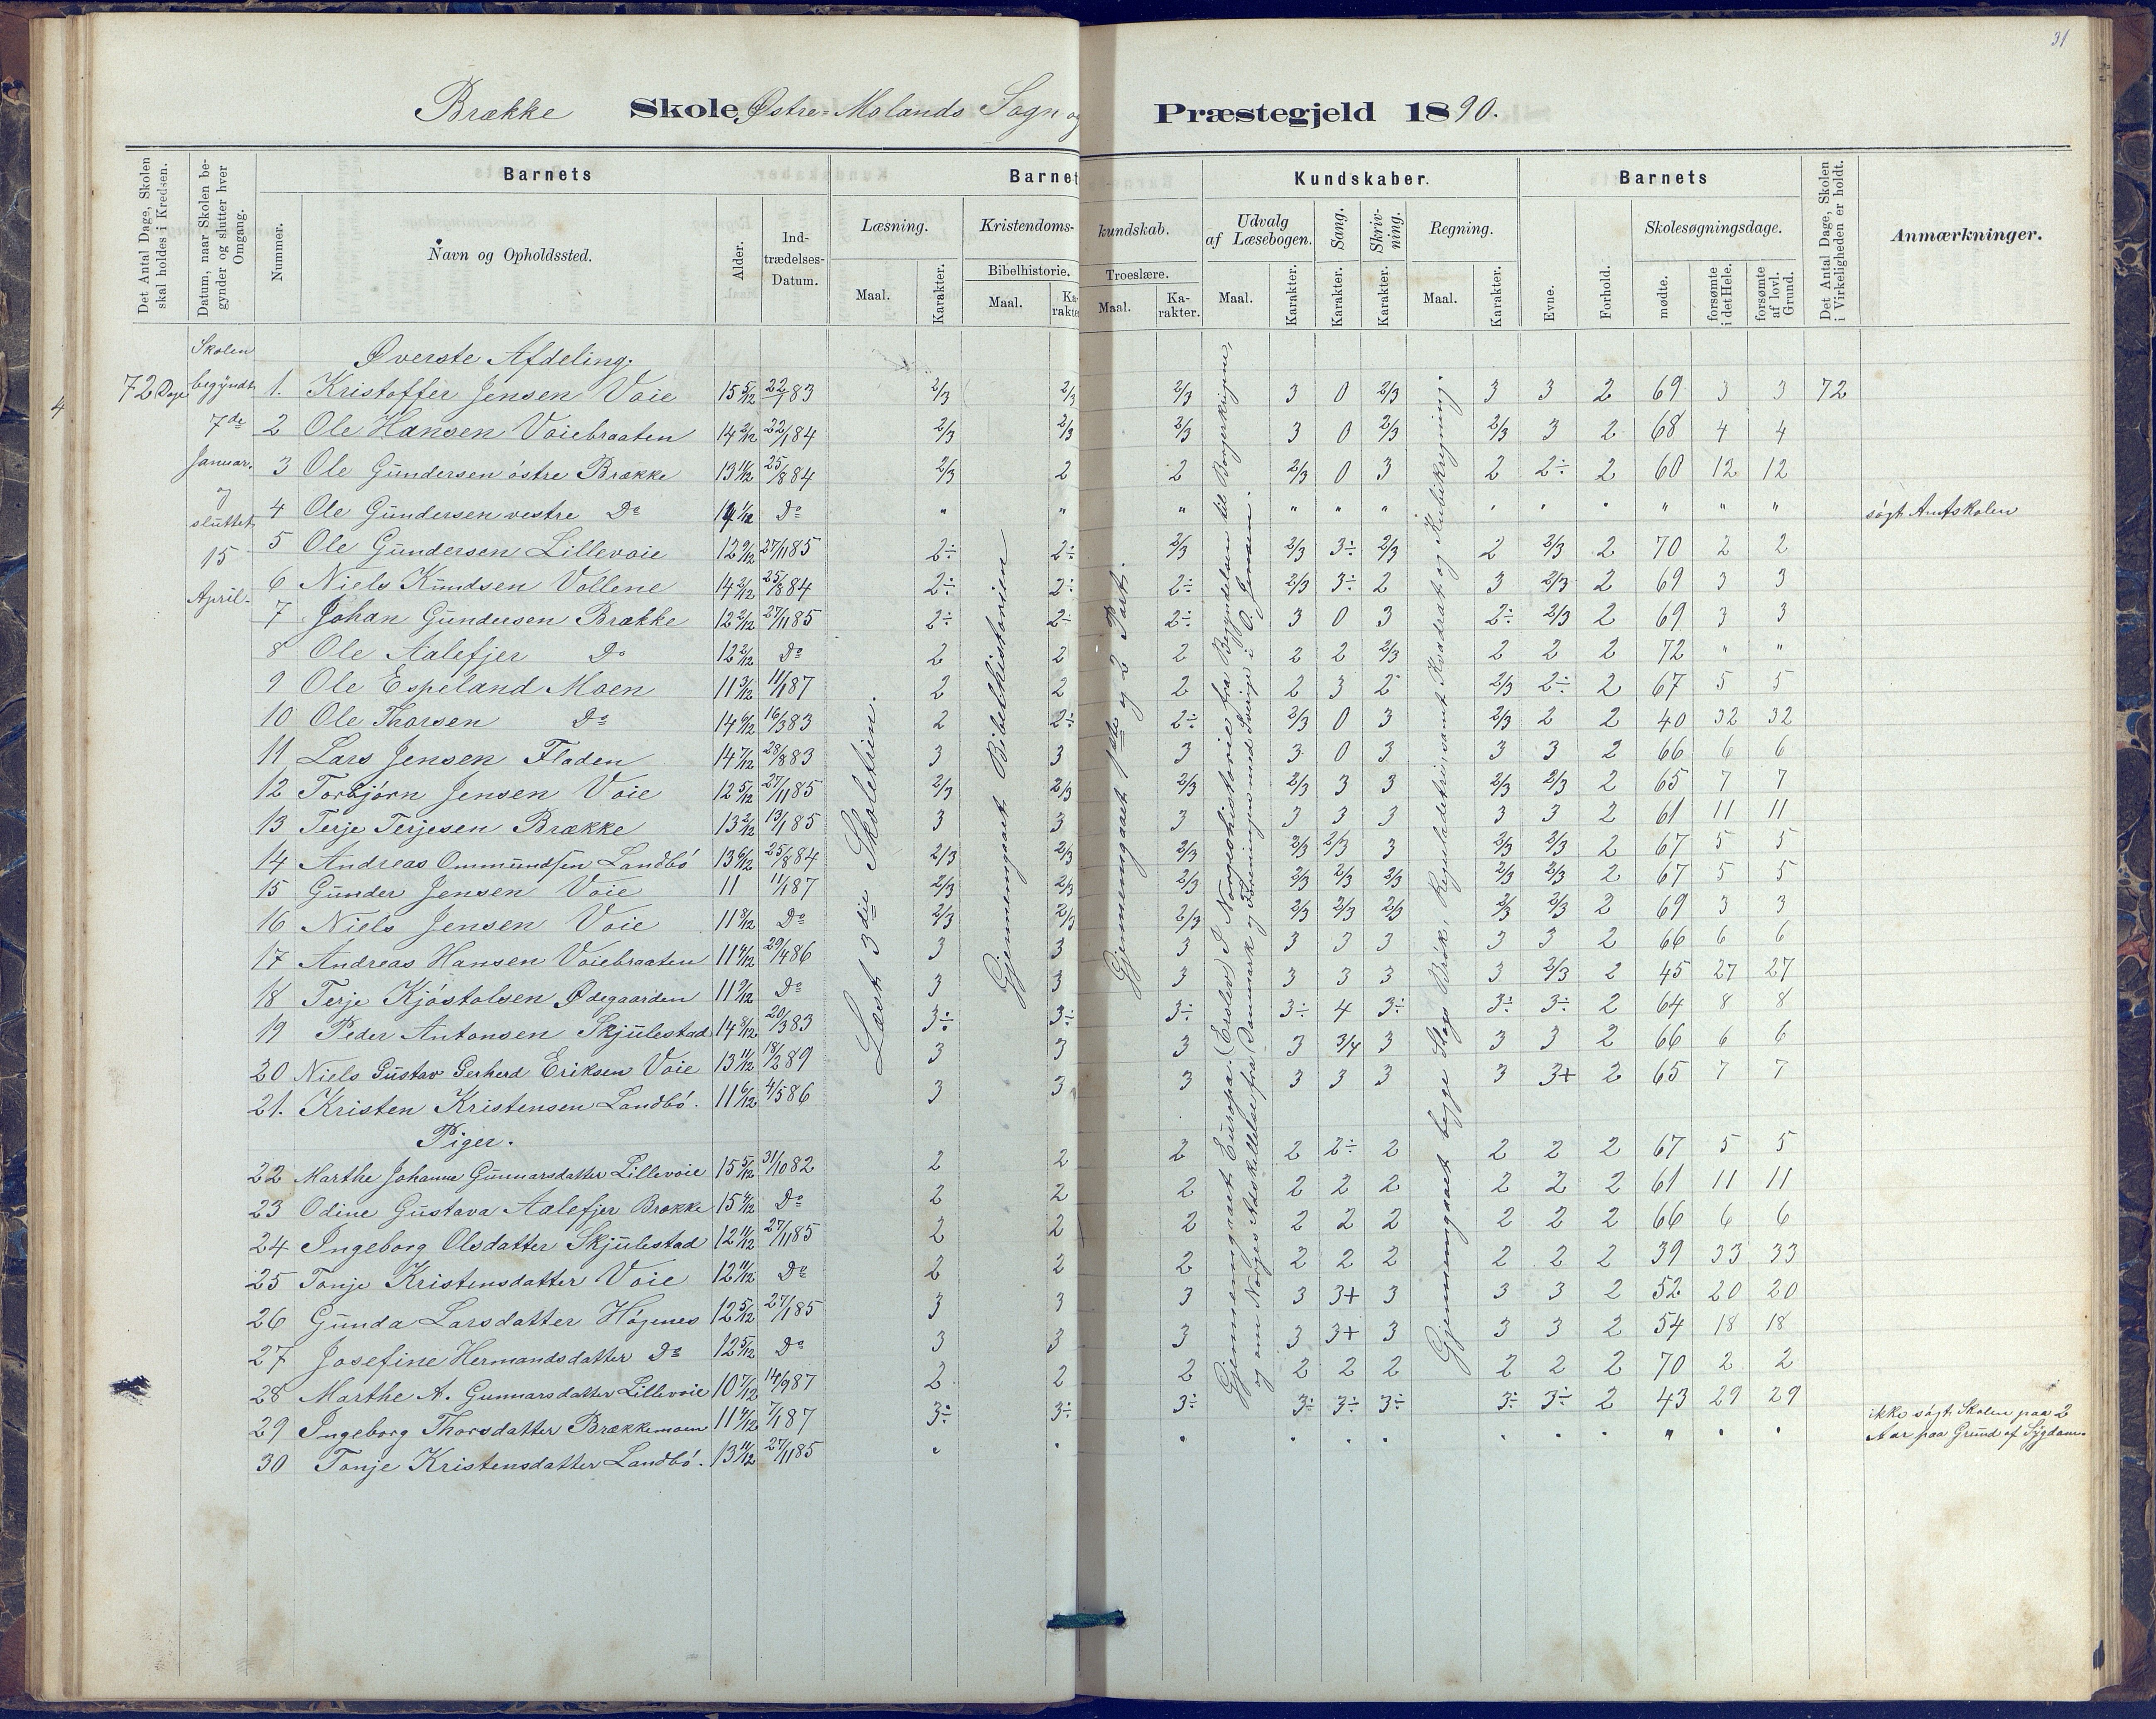 31
Brække Skole, Østre-Molands Sogn og Præstegjeld 1890.
Det Antal Dage, Skolen skal holdes i Kredsen.
Datum, naar Skolen begynder og slutter hver Omgang.
Barnets
Nummer.
Navn og Opholdssted.
Alder.
Indtrædelses-Datum.
Barnets Kundskaber.
Læsning.
Maal.
Karakter.
Kristendomskundskab.
Bibelhistorie.
Maal.
Karakter.
Troeslære.
Maal.
Karakter.
Udvalg af Læsebogen.
Maal.
Karakter.
Sang.
Karakter.
Skrivning.
Karakter.
Regning.
Maal.
Karakter.
Barnets
Evne.
Forhold.
Skolesøgningsdage.
mødte.
forsømte i det Hele.
forsømte af lovl. Grund.
Det Antal Dage, Skolen i Virkeligheden er holdt.
Anmærkninger.
4
72 Dage
Skolen
begyndt
7de
Januar.
og
sluttet
15
April.
Læst 3die Skoletrin.
Gjennemgaaet Bibelhistorien
Gjennemgaaet 1ste og 2 Part.
Gjennemgaaet Europa. (Erslev) I Norgeshistorie fra Begyndelsen til Borgerkrigene,
og om Norges Adskillelse fra Danmark og Foreningen med Sverige i O. Jensen.
Gjennemgaaet begge Slags Brøk, Reguladetri, samt Kvadrat og Kubikregning.
Øverste Afdeling.
1. Kristoffer Jensen Voie 15 5/12 22/1 83 2/3 2/3 2/3 3 0 2/3 3 3 2 69 3 3 72
2 Ole Hansen Voiebraaten 14 2/12 22/1 84 2/3 2/3 2/3 3 0 2/3 2/3 3 2 68 4 4
3 Ole Gundersen østre Brække 13 11/12 25/8 84 2/3 2 2 2/3 0 3 2 2÷ 2 60 12 12
4 Ole Gundersen vestre Do 1/12 Do " " " " " " " " " " " " søgt Amtskolen
5 Ole Gundersen Lillevoie 12 9/12 27/1 85 2÷ 2÷ 2/3 2/3 3÷ 2/3 2 2/3 2 70 2 2
6 Niels Knudsen Vollene 14 2/12 25/8 84 2÷ 2÷ 2÷ 2/3 3÷ 2 3 2/3 2 69 3 3
7 Johan Gundersen Brække 12 2/12 27/11 85 2÷ 2÷ 2÷ 3 0 3 2÷ 2/3 2 69 3 3
8 Ole Aalefjer Do 12 2/12 Do 2 2 2 2 2 2/3 2 2 2 72 " "
9 Ole Espeland Moen 11 3/12 11/1 87 2 2 2 2 3 2 2/3 2÷ 2 67 5 5
10 Ole Thorsen Do 14 6/12 16/3 83 2 2÷ 2÷ 2/3 0 3 2/3 2 2 40 32 32
11 Lars Jensen Fladen 14 7/12 28/8 83 3 3 3 3 0 3 3 3 2 66 6 6
12 Torbjørn Jensen Voie 12 5/12 27/11 85 2/3 2/3 2/3 2/3 3 3 2/3 2/3 2 65 7 7
13 Terje Terjesen Brække 13 2/12 13/1 85 3 3 3 3 3 3 3 3 2 61 11 11
14 Andreas Ommundsen Landbö 13 6/12 25/8 84 2/3 2/3 2/3 2/3 2/3 3 2/3 2/3 2 67 5 5
15 Gunder Jensen Voie 11 11/1 87 2/3 2/3 2/3 2/3 2/3 2/3 2/3 2/3 2 67 5 5
16 Niels Jensen Voie 11 8/12 Do 2/3 2/3 2/3 2/3 2/3 2/3 2/3 2/3 2 69 3 3
17 Andreas Hansen Voiebraaten 11 4/12 29/4 86 3 3 3 3 3 3 3 3 2 66 6 6
18 Terje Kjøstolsen Ødegaarden 11 9/12 Do 3 3 3 3 3 3 3 2/3 2 45 27 27
19 Peder Antonsen Skjulestad 14 8/12 20/3 83 3÷ 3÷ 3÷ 3÷ 4 3÷ 3÷ 3÷ 2 64 8 8
20 Niels Gustav Gerherd Eriksen Voie 13 11/12 18/2 89 3 3 3 3 3/4 3 3 3 2 66 6 6
21. Kristen Kristensen Landbö. 11 6/12 4/5 86 3 3 3 3 3 3 3 3+ 2 65 7 7
Piger.
22 Marthe Johanne Gunnarsdatter Lillevoie 15 5/12 31/10 82 2 2 2 2 2÷ 2 2 2 2 67 5 5
23 Odine Gustava Aalefjer Brække 15 4/12 Do 2 2 2 2 2 2 2 2 2 61 11 11
24 Ingeborg Olsdatter Skjulestad 12 11/12 27/11 85 2 2 2 2 2 2 2 2 2 66 6 6
25 Tonje Kristensdatter Voie 12 11/12 Do 2 2 2 2 2 2 2 2 2 39 33 33
26 Gunda Larsdatter Högenes 12 5/12 27/1 85 3 3 3 3 3+ 3 3 3 2 52 20 20
27 Josefine Hermandsdatter Do 12 5/12 Do 3 3 3 3 3+ 3 3 3 2 54 18 18
28 Marthe A. Gunnarsdatter Lillevoie 10 7/12 14/9 87 2 2 2 2 2 2 2 2 2 70 2 2
29 Ingeborg Thorsdatter Brækkemoen 11 4/12 7/1 87 3÷ 3÷ 3÷ 3÷ 3÷ 3÷ 3÷ 3÷ 2 43 29 29
30 Tonje Kristensdatter Landbö. 13 11/12 27/11 85 " " " " " " " " " " " " ikke søgt Skolen paa 2
Aar paa Grund af Sygdom.